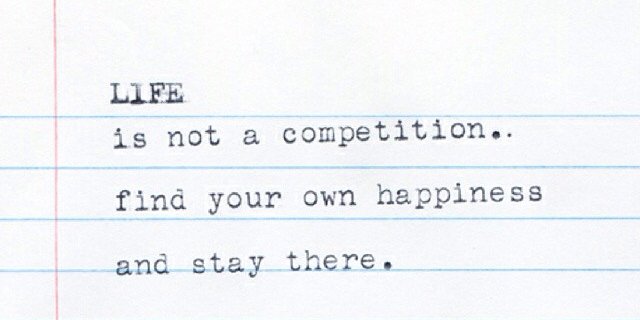 LIFE
is not a competition..
find your own happiness
and stay there.